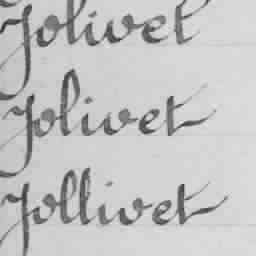 Jolivet
Jolivet
Jollivet